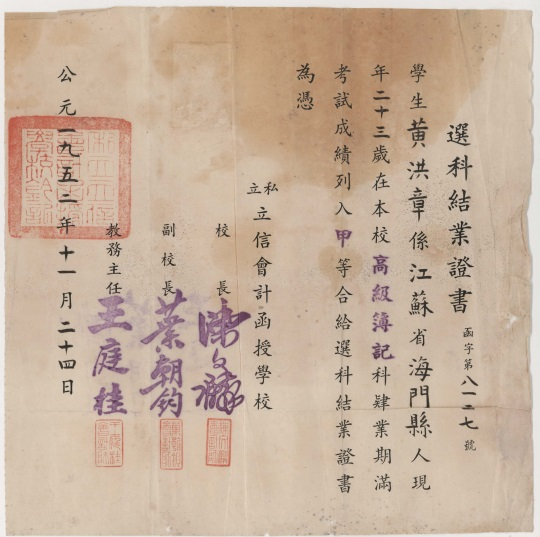 選科結業證書
函字第八一二七號
學生黃洪章係江蘇省海門縣人現
年二十三歲在本校高級簿記科肄業期滿
考試成績列入甲等合給選科結業證書
為憑
私立立信會計函授學校
校長陳文麟
副校長葉朝鈞
教務主任王庭桂
公元一九五二年十一月二十四日